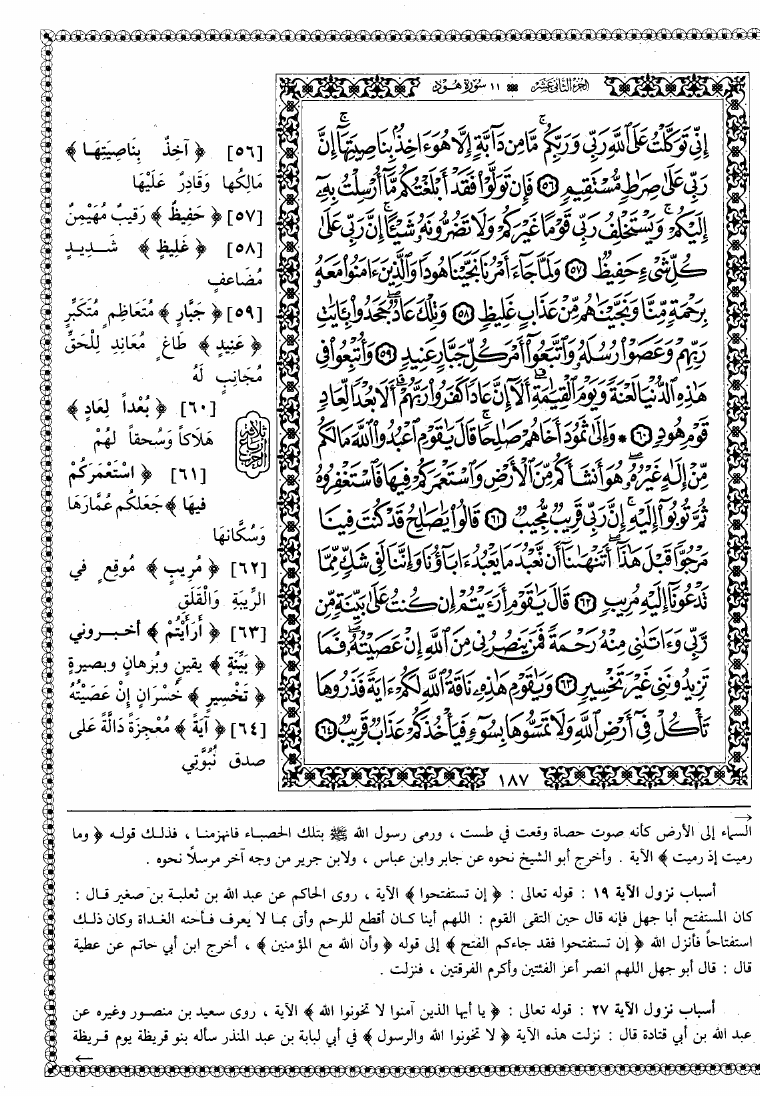 الجزء الثاني عشر ١١ سورة هود
إِنِّي تَوَكَّلْتُ عَلَى ٱللَّهِ رَبِّي وَرَبِّكُم ۚ مَّا مِن دَآبَّةٍ إِلَّا هُوَ ءَاخِذٌۢ بِنَاصِيَتِهَآ ۚ إِنَّ
رَبِّي عَلَىٰ صِرَٰطٍ مُّسْتَقِيمٍ ٥٦ فَإِن تَوَلَّوْا۟ فَقَدْ أَبْلَغْتُكُم مَّآ أُرْسِلْتُ بِهِۦٓ
إِلَيْكُمْ ۚ وَيَسْتَخْلِفُ رَبِّي قَوْمًا غَيْرَكُمْ وَلَا تَضُرُّونَهُۥ شَيْـًٔا ۚ إِنَّ رَبِّي عَلَىٰ
كُلِّ شَيْءٍ حَفِيظٌ ٥٧ وَلَمَّا جَآءَ أَمْرُنَا نَجَّيْنَا هُودًا وَٱلَّذِينَ ءَامَنُوا۟ مَعَهُۥ
بِرَحْمَةٍ مِّنَّا وَنَجَّيْنَٰهُم مِّنْ عَذَابٍ غَلِيظٍ ٥٨ وَتِلْكَ عَادٌ ۖ جَحَدُوا۟ بِـَٔايَٰتِ
رَبِّهِمْ وَعَصَوْا۟ رُسُلَهُۥ وَٱتَّبَعُوٓا۟ أَمْرَ كُلِّ جَبَّارٍ عَنِيدٍ ٥٩ وَأُتْبِعُوا۟ فِي
هَٰذِهِ ٱلدُّنْيَا لَعْنَةً وَيَوْمَ ٱلْقِيَٰمَةِ ۗ أَلَآ إِنَّ عَادًا كَفَرُوا۟ رَبَّهُمْ ۗ أَلَا بُعْدًا لِّعَادٍ
قَوْمِ هُودٍ ٦٠ * وَإِلَىٰ ثَمُودَ أَخَاهُمْ صَٰلِحًا ۚ قَالَ يَٰقَوْمِ ٱعْبُدُوا۟ ٱللَّهَ مَا لَكُم
مِّنْ إِلَٰهٍ غَيْرُهُۥ ۖ هُوَ أَنشَأَكُم مِّنَ ٱلْأَرْضِ وَٱسْتَعْمَرَكُمْ فِيهَا فَٱسْتَغْفِرُوهُ
ثُمَّ تُوبُوٓا۟ إِلَيْهِ ۚ إِنَّ رَبِّي قَرِيبٌ مُّجِيبٌ ٦١ قَالُوا۟ يَٰصَٰلِحُ قَدْ كُنتَ فِينَا
مَرْجُوًّا قَبْلَ هَٰذَآ ۖ أَتَنْهَىٰنَآ أَن نَّعْبُدَ مَا يَعْبُدُ ءَابَآؤُنَا وَإِنَّنَا لَفِي شَكٍّ مِّمَّا
تَدْعُونَآ إِلَيْهِ مُرِيبٍ ٦٢ قَالَ يَٰقَوْمِ أَرَءَيْتُمْ إِن كُنتُ عَلَىٰ بَيِّنَةٍ مِّن
رَّبِّي وَءَاتَىٰنِي مِنْهُ رَحْمَةً فَمَن يَنصُرُنِي مِنَ ٱللَّهِ إِنْ عَصَيْتُهُۥ ۖ فَمَا
تَزِيدُونَنِي غَيْرَ تَخْسِيرٍ ٦٣ وَيَٰقَوْمِ هَٰذِهِۦ نَاقَةُ ٱللَّهِ لَكُمْ ءَايَةً فَذَرُوهَا
تَأْكُلْ فِيٓ أَرْضِ ٱللَّهِ وَلَا تَمَسُّوهَا بِسُوٓءٍ فَيَأْخُذَكُمْ عَذَابٌ قَرِيبٌ ٦٤
١٨٧
[٥٦] ﴿ آخِذٌ بِنَاصِيَتِهَـا ﴾
مَالِكُها وَقَادِرٌ عَلَيْهَا
[٥٧] ﴿ حَفِيظٌ ﴾ رَقيبٌ مُهَيْمِنٌ
[٥٨] ﴿ غَلِيظٍ ﴾ شَـدِيـدٍ
مُضَاعفٍ
[٥٩] ﴿ جَبَّارٍ ﴾ مُتَعَاظِمٍ مُتَكَبِّرٍ
﴿ عَنِيدٍ ﴾ طَاغٍ مُعَانِدٍ لِلْحَقِّ
مُجَانِبٍ لَهُ
[٦٠] ﴿ بُعْداً لِعَادٍ ﴾
هَلَاكاً وَسُحقاً لَهُمْ
[٦١] ﴿ اسْتَعْمَرَكُمْ
فيهَا ﴾ جَعَلَكُم عُمَّارَهَا
وَسُكَّانهَا
[٦٢] ﴿ مُريبٍ ﴾ مُوقِعٍ في
الرِّيبَةِ وَالْقَلَقِ
[٦٣] ﴿ أَرَأَيْتُمْ ﴾ أخبـروني
﴿ بَيِّنَةٍ ﴾ يقينٍ وبُرْهانٍ وبصيرةٍ
﴿ تَخْسِيرٍ ﴾ خُسْرَانٍ إنْ عَصَيْتُهُ
[٦٤] ﴿ آيَةً ﴾ مُعْجِزَةً دَالَّةً عَلى
صدق نُبُوَّتِي
ثلاثة
أرباع
الحزب
السماء إلى الأرض كأنه صوت حصاة وقعت في طست ، ورمى رسول الله ﷺ بتلك الحصباء فانهزمنا ، فذلك قوله ﴿ وما
رميت إذ رميت ﴾ الآية . وأخرج أبو الشيخ نحوه عن جابر وابن عباس ، ولابن جرير من وجه آخر مرسلاً نحوه .
أسباب نزول الآية ١٩ : قوله تعالى : ﴿ إن تستفتحوا ﴾ الآية ، روى الحاكم عن عبد الله بن ثعلبة بن صغير قال :
كان المستفتح أبا جهل فإنه قال حين التقى القوم : اللهم أينا كـان أقطع للرحم وأتى بمـا لا يعرف فـأحنه الغداة وكان ذلـك
استفتاحاً فأنزل الله ﴿ إن تستفتحوا فقد جاءكم الفتح ﴾ إلى قوله ﴿ وأن الله مع المؤمنين ﴾ ، أخرج ابن أبي حاتم عن عطية
قال : قال أبو جهل اللهم انصر أعز الفئتين وأكرم الفرقتين ، فنزلت .
أسباب نزول الآية ٢٧ : قوله تعالى : ﴿ يا أيها الذين آمنوا لا تخونوا الله ﴾ الآية ، روى سعيد بن منصور وغيره عن
عبد الله بن أبي قتادة قال : نزلت هذه الآية ﴿ لا تخونوا الله والرسول ﴾ في أبي لبابة بن عبد المنذر سأله بنو قريظة يوم قـريظة